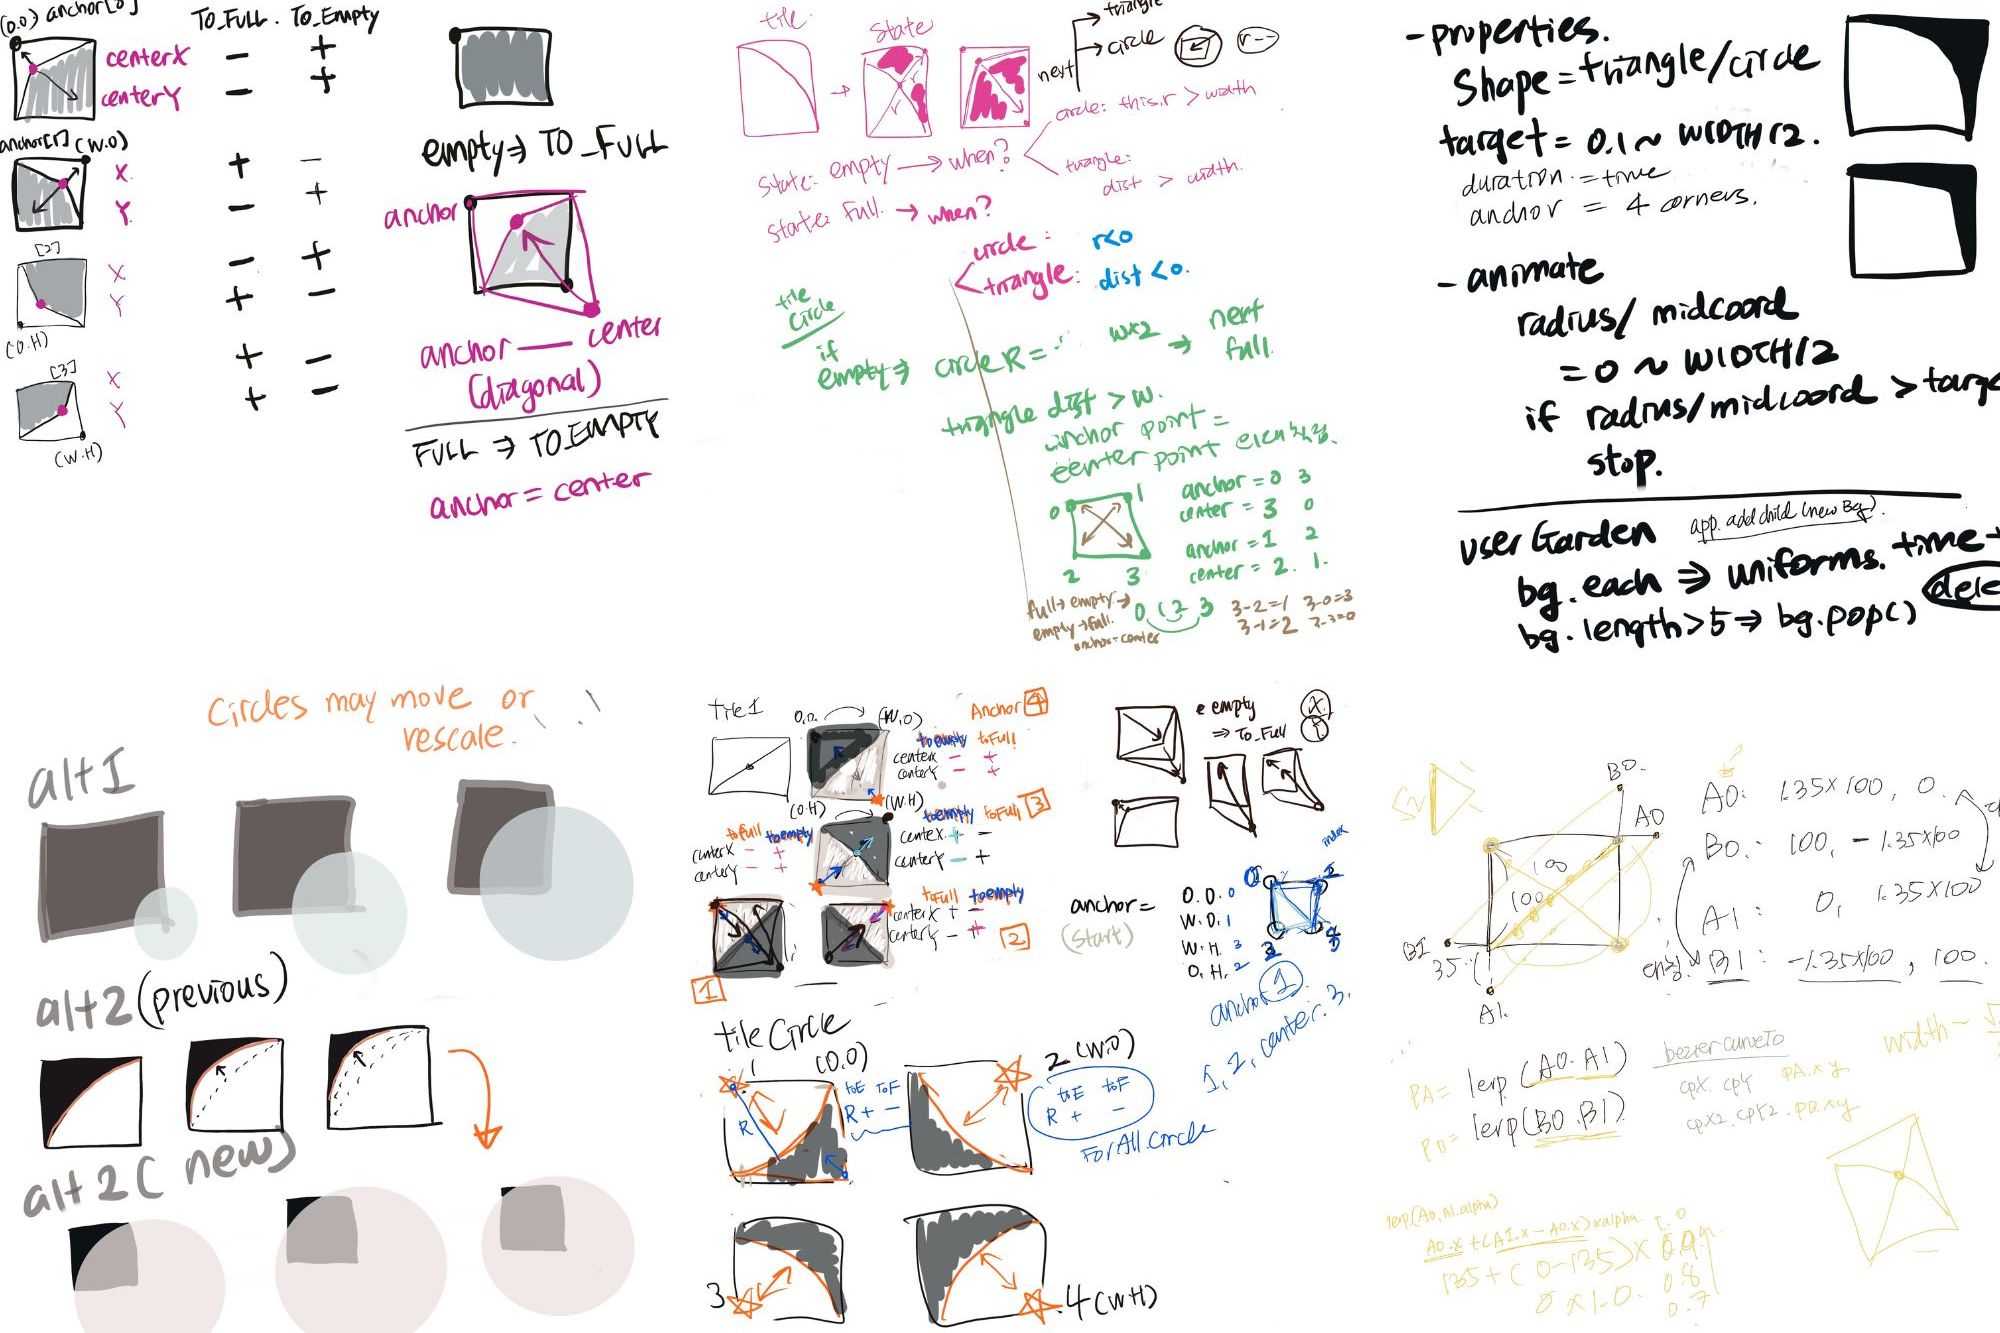 (0.0) anchor[0]
TO_FULL. TO_Empty
centerX - +
centerY - +
anchor[1] (W.0)
X. + -
Y. - +
[2]
X - +
Y + -
(0.H)
[3]
X + -
Y + -
(W.H)
empty⇒ TO_FULL
anchor
center
anchor — center
(diagonal)
FULL ⇒ TO_EMPTY
anchor = center
tile.
State
next
triangle
circle
r--
State: empty → when?
circle: this.r > width
triangle:
dist > width.
State: Full. → when?
circle: r<0
triangle: dist <0.
tile
circle
if
empty⇒ circle R = w×2 → next
full.
triangle dist > w.
anchor point =
center point
0 1
2 3
anchor = 0 3
center = 3 0
anchor = 1 2
center = 2. 1.
full→empty→
0 1 2 3
3-2=1 3-0=3
empty→full.
3-1=2 3-3=0
anchor=center
-properties.
Shape = triangle/circle
target = 0.1 ~ WIDTH/2.
duration. = time
anchor = 4 corners.
-animate
radius/ midcoord
= 0 ~ WIDTH/2
if radius/midcoord > targe
stop.
user Garden
app. add child (new Bg).
bg.each ⇒ uniforms. time+
bg.length>5 ⇒ bg.pop()
dele
Circles may move or
rescale.
alt1
alt2 (previous)
alt2 ( new)
tile1
0.0. (W.0)
Anchor 4
toempty toFull
centerX - +
centerY - +
(0.H) (W.H)
3
toempty toFull
centeX + -
centerY - +
toFull toempty
centerX - +
centerY - +
toFull toempty
centerX + -
centerY - +
1
2
e empty
⇒ To_Full
X.
Y.
anchor =
(start)
0.0. 0
W.0. 1
W.H. 3
0.H. 2
index
anchor 1
1, 2, center. 3.
tile Circle
1 (0,0)
toE toF
R + -
R
2 (W.0)
toE toF
R + -
For All. circle
3
4 (W.H)
B0.
A0
100
100
B1
35
A1.
A0: 1.35×100, 0.
B0.: 100, -1.35×100
A1: 0, 1.35×100
B1: -1.35×100, 100.
PA = lerp (A0. A1)
lerp(B0.B1)
bezier curveTo
cpX. cpY PA.xy
cpx2. cpY2.
width -
lerp(A0,A1.alpha)
A0.x + (A1.x - A0.x) × alpha.
135 + ( 0-135) × 0.9
0.8
0.7